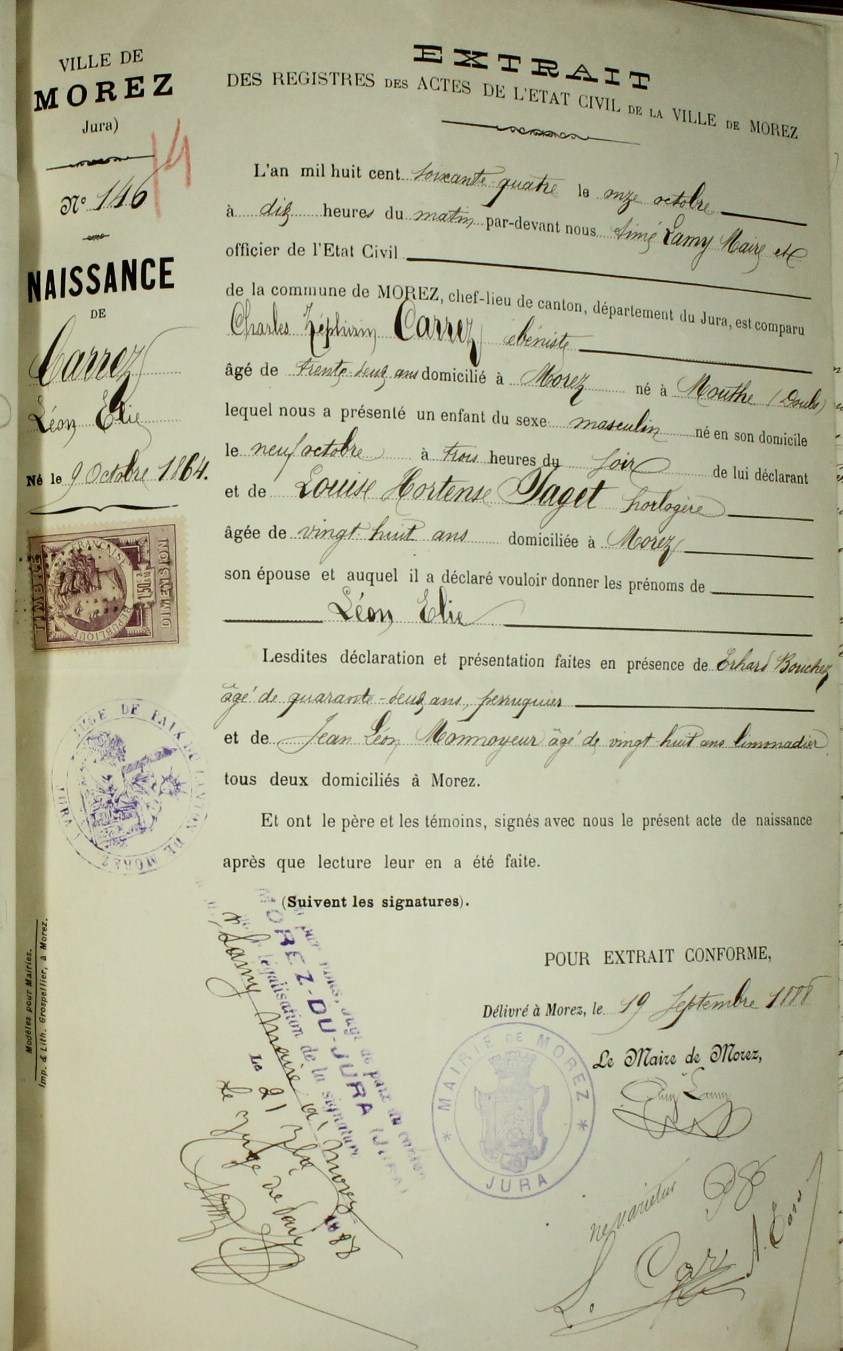 VILLE DE
MOREZ
Jura)
14
No 146
NAISSANCE
DE
Carrez
Léon Elie
Né le 9 Octobre 1864.
TIMBRE
RÉPUBLIQUE FRANÇAISE
1F50
DIMENSION
JUGE DE PAIX DU CANTON DE MOREZ
JURA
Modèles pour Mairies.
Imp. & Lith. Grospellier, à Morez.
EXTRAIT
DES REGISTRES DES ACTES DE L'ETAT CIVIL DE LA VILLE DE MOREZ
L'an mil huit cent soixante quatre le onze octobre
à dix heures du matin par-devant nous Aimé Lamy Maire et
officier de l'Etat Civil
de la commune de MOREZ, chef-lieu de canton, département du Jura, est comparu
Charles Zéphirin Carrez ébéniste
âgé de trente-deux ans domicilié à Morez né à Mouthe (Doubs)
lequel nous a présenté un enfant du sexe masculin né en son domicile
le neuf octobre à trois heures du soir de lui déclarant
et de Louise Hortense Paget horlogère
âgée de vingt huit ans domiciliée à Morez
son épouse et auquel il a déclaré vouloir donner les prénoms de
Léon Elie
Lesdites déclaration et présentation faites en présence de Erhard Bouchez
âgé de quarante-deux ans, perruquier
et de Jean Léon Monnoyeur âgé de vingt huit ans limonadier
tous deux domiciliés à Morez.
Et ont le père et les témoins, signés avec nous le présent acte de naissance
après que lecture leur en a été faite.
(Suivent les signatures).
POUR EXTRAIT CONFORME,
Délivré à Morez, le 19 Septembre 1888
Le Maire de Morez,
Lamy
MAIRIE DE MOREZ
JURA
par nous, Juge de paix du canton
MOREZ-DU-JURA (JURA)
légalisation de la signature
Lamy Maire à Morez
Le 21 7bre 1888
Le Juge de Paix
ne varietur
L. Car